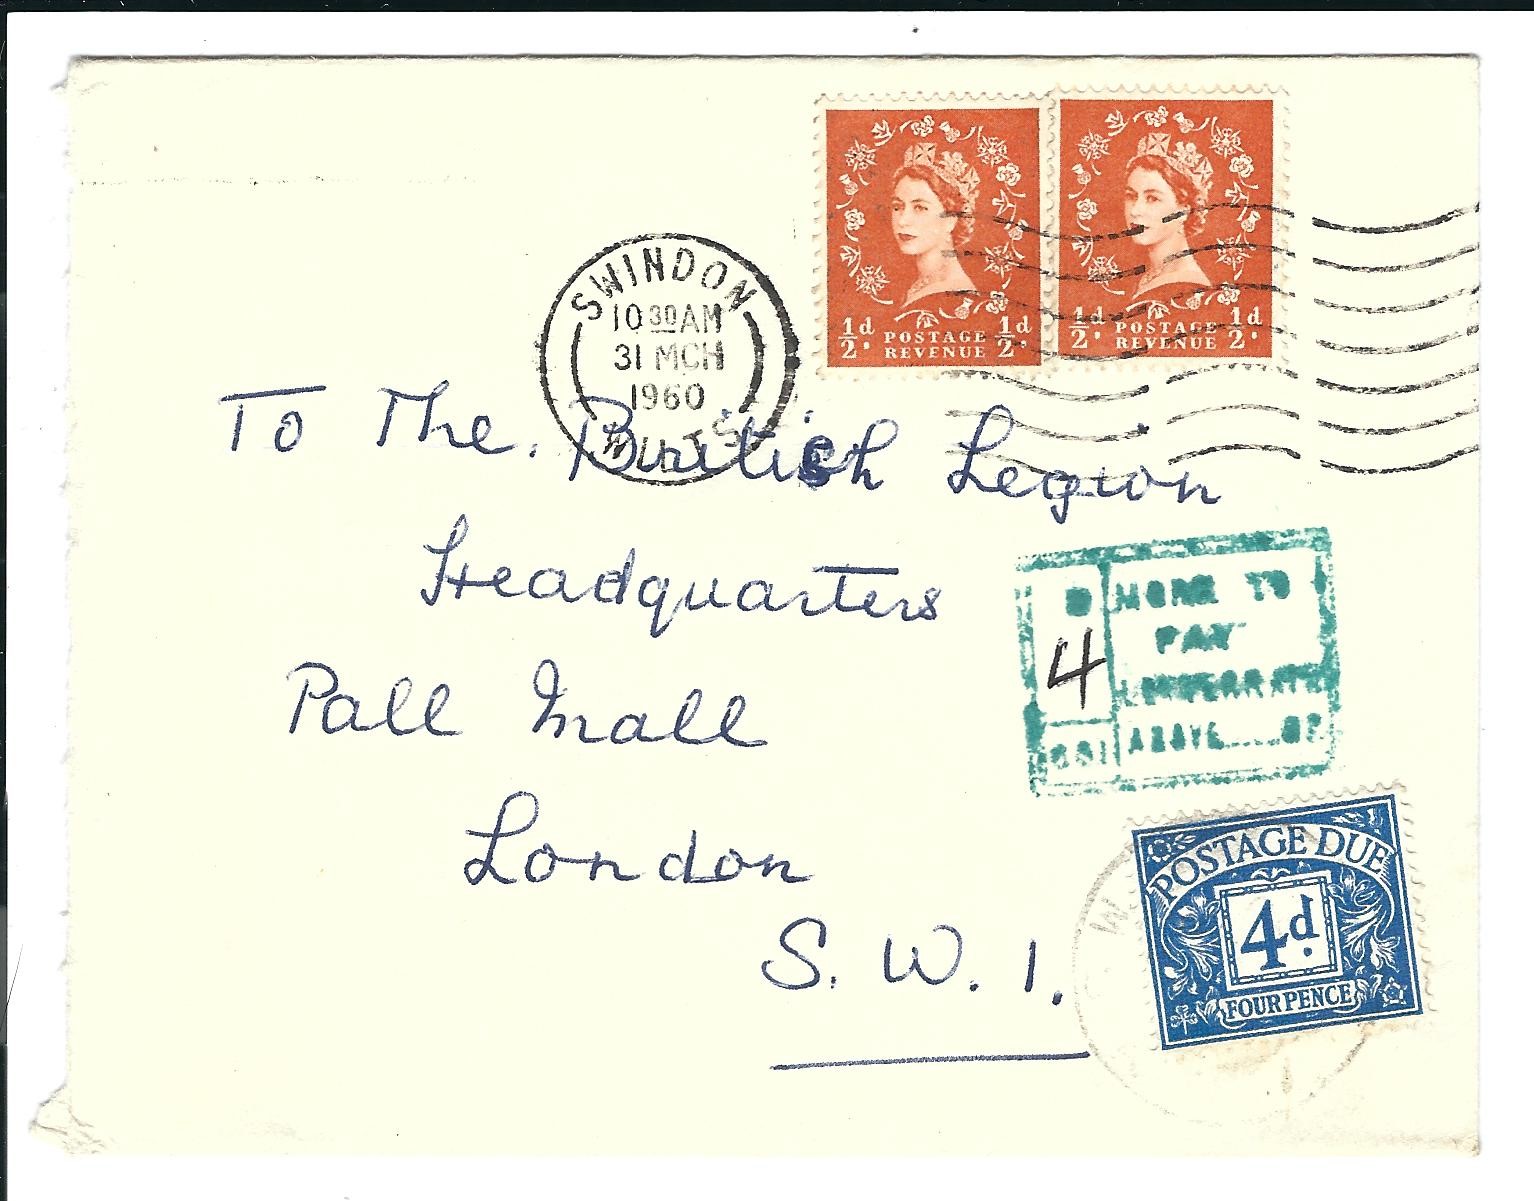 ½d ½d.
POSTAGE
REVENUE
½d. ½d.
POSTAGE
REVENUE
SWINDON
10 30 AM
31 MCH
1960
WILTS
To The. British Legion
Headquarters
Pall Mall
London
S. W. 1.
4
MORE TO
PAY
ABOVE
POSTAGE DUE
4d.
FOUR PENCE